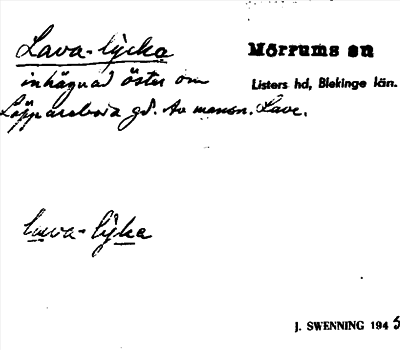 Lava-lycka
Mörrums sn
inhägnad öster om
Listers hd, Blekinge län.
Löppareboda gd. Av mansn. Lave.
lava-lyka
J. SWENNING 1945